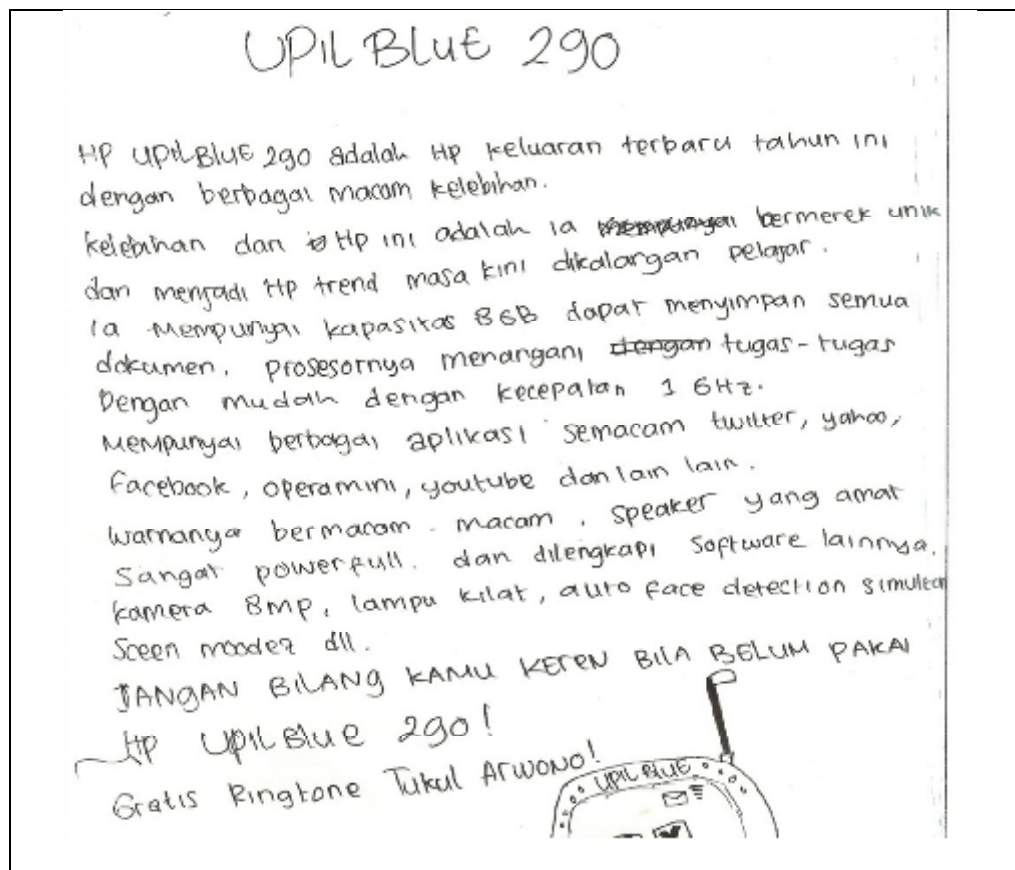 UPIL BLUE 290
HP UPIL BLUE 290 adalah HP keluaran terbaru tahun ini
dengan berbagai macam kelebihan.
kelebihan dari Hp ini adalah ia bermerek unik
dan menjadi Hp trend masa kini dikalangan pelajar.
ia mempunyai kapasitas 8GB dapat menyimpan semua
dokumen, prosesornya menangani dengan tugas-tugas
Dengan mudah dengan kecepatan 1 GHz.
Mempunyai berbagai aplikasi semacam twitter, yahoo,
facebook, operamini, youtube dan lain lain.
warnanya bermacam-macam, speaker yang amat
Sangat powerfull. dan dilengkapi software lainnya.
kamera 8mp, lampu kilat, auto face detection simultan
Sceen modez dll.
JANGAN BILANG KAMU KEREN BILA BELUM PAKAI
HP UPIL Blue 290!
Gratis Ringtone Tukul Arwono!
UPIL BLUE